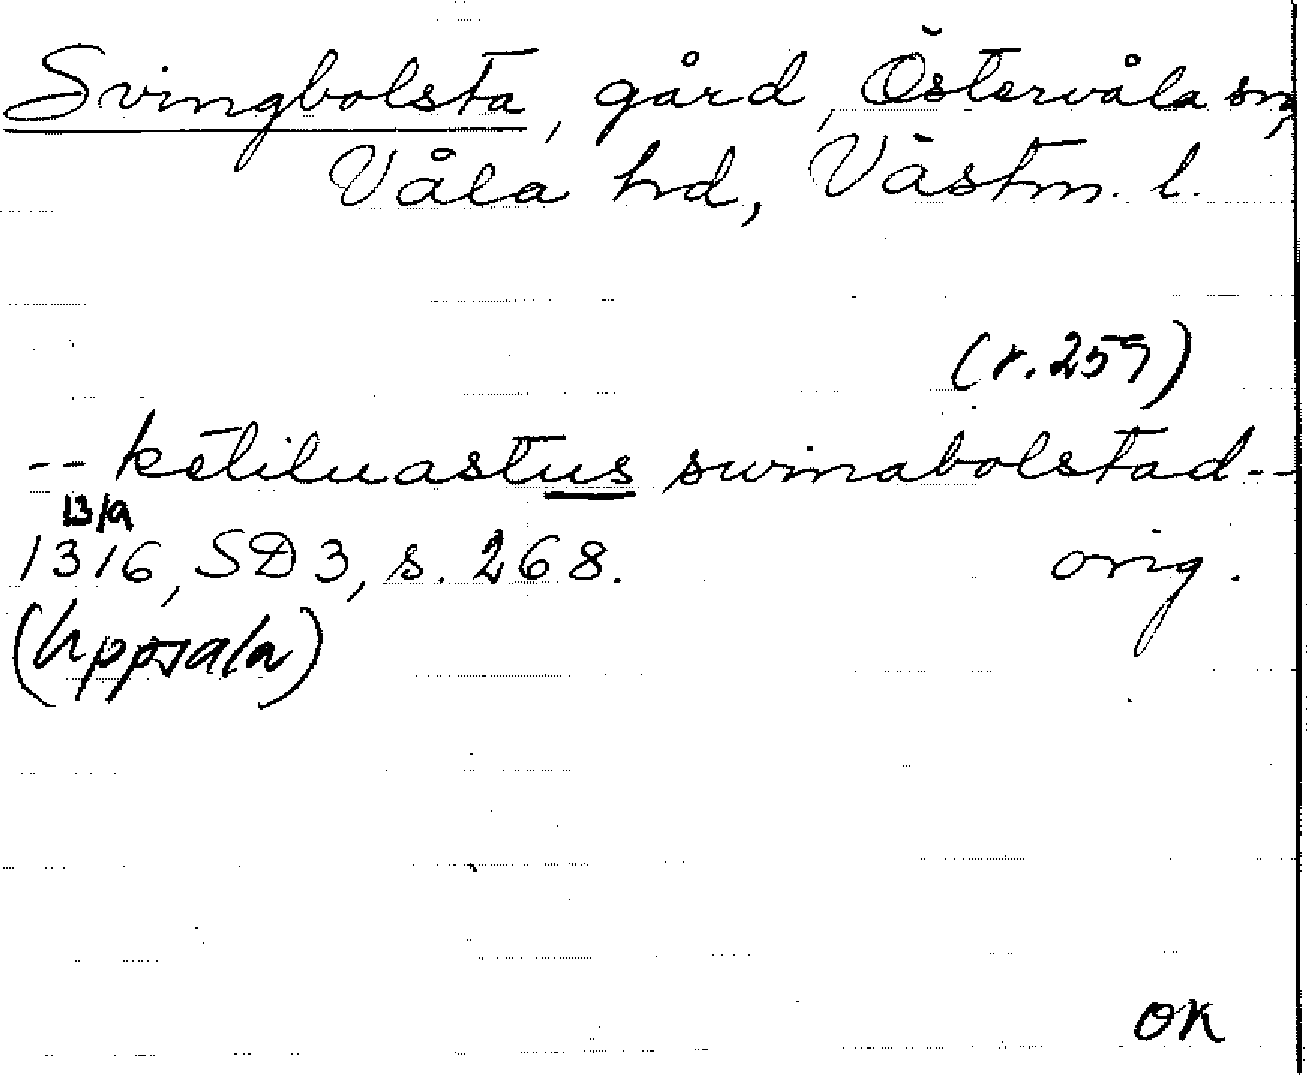 Svingbolsta, gård, Östervåla sn,
Våla hd, Västm. l.
(r. 259)
-- ketiluastus swinabolstad --
13/9
1316, SD 3, s. 268. orig.
(Uppsala)
OK